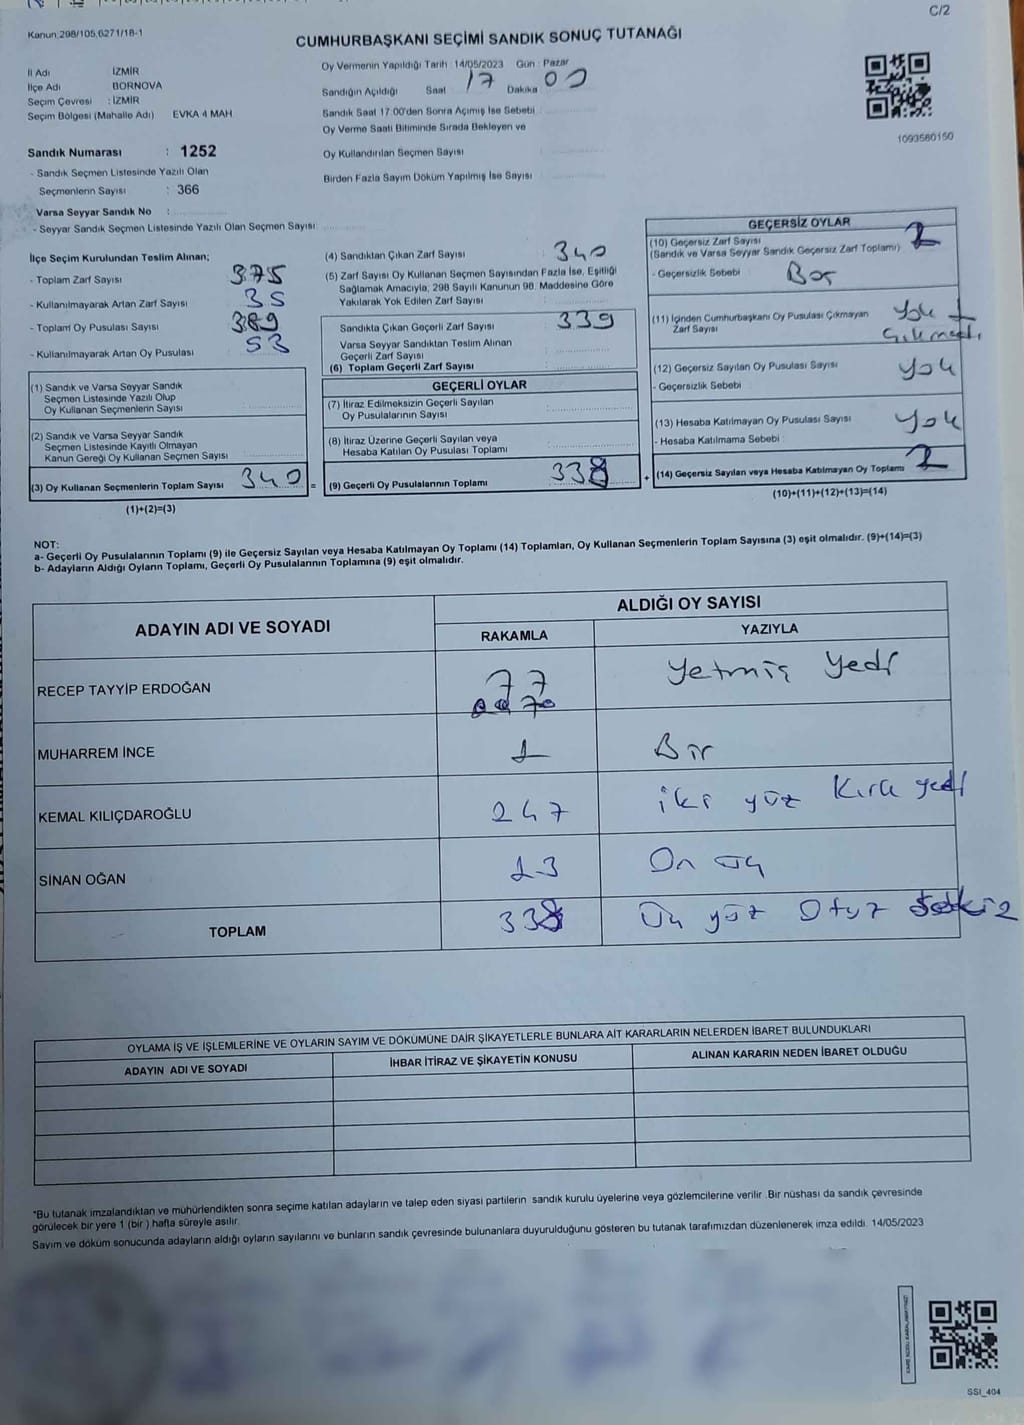 C/2
Kanun 298/105,6271/18-1
CUMHURBAŞKANI SEÇİMİ SANDIK SONUÇ TUTANAĞI
İl Adı İZMİR
İlçe Adı BORNOVA
Seçim Çevresi : İZMİR
Seçim Bölgesi (Mahalle Adı) EVKA 4 MAH
Oy Vermenin Yapıldığı Tarih : 14/05/2023 Gün : Pazar
Sandığın Açıldığı Saat 17 Dakika 00
Sandık Saat 17.00'den Sonra Açımış İse Sebebi :
Oy Verme Saati Bitiminde Sırada Bekleyen ve
Oy Kullandırılan Seçmen Sayısı :
Birden Fazla Sayım Döküm Yapılmış İse Sayısı :
1093580150
Sandık Numarası : 1252
- Sandık Seçmen Listesinde Yazılı Olan
Seçmenlerin Sayısı : 366
Varsa Seyyar Sandık No :
- Seyyar Sandık Seçmen Listesinde Yazılı Olan Seçmen Sayısı
İlçe Seçim Kurulundan Teslim Alınan;
- Toplam Zarf Sayısı 375
- Kullanılmayarak Artan Zarf Sayısı 35
- Toplam Oy Pusulası Sayısı 389
- Kullanılmayarak Artan Oy Pusulası 53
(1) Sandık ve Varsa Seyyar Sandık
Seçmen Listesinde Yazılı Olup
Oy Kullanan Seçmenlerin Sayısı
(2) Sandık ve Varsa Seyyar Sandık
Seçmen Listesinde Kayıtlı Olmayan
Kanun Gereği Oy Kullanan Seçmen Sayısı
(3) Oy Kullanan Seçmenlerin Toplam Sayısı 340 =
(1)+(2)=(3)
(4) Sandıktan Çıkan Zarf Sayısı 340
(5) Zarf Sayısı Oy Kullanan Seçmen Sayısından Fazla İse, Eşitliği
Sağlamak Amacıyla, 298 Sayılı Kanunun 98. Maddesine Göre
Yakılarak Yok Edilen Zarf Sayısı
Sandıkta Çıkan Geçerli Zarf Sayısı 339
Varsa Seyyar Sandıktan Teslim Alınan
Geçerli Zarf Sayısı
(6) Toplam Geçerli Zarf Sayısı
GEÇERLİ OYLAR
(7) İtiraz Edilmeksizin Geçerli Sayılan
Oy Pusulalarının Sayısı
(8) İtiraz Üzerine Geçerli Sayılan veya
Hesaba Katılan Oy Pusulası Toplamı
(9) Geçerli Oy Pusulalarının Toplamı 338 +
GEÇERSİZ OYLAR
(10) Geçersiz Zarf Sayısı 2
(Sandık ve Varsa Seyyar Sandık Geçersiz Zarf Toplamı)
- Geçersizlik Sebebi : Boş
(11) İçinden Cumhurbaşkanı Oy Pusulası Çıkmayan Yok
Zarf Sayısı Çıkmadı
(12) Geçersiz Sayılan Oy Pusulası Sayısı Yok
- Geçersizlik Sebebi
(13) Hesaba Katılmayan Oy Pusulası Sayısı Yok
- Hesaba Katılmama Sebebi :
(14) Geçersiz Sayılan veya Hesaba Katılmayan Oy Toplamı 2
(10)+(11)+(12)+(13)=(14)
NOT:
a- Geçerli Oy Pusulalarının Toplamı (9) ile Geçersiz Sayılan veya Hesaba Katılmayan Oy Toplamı (14) Toplamları, Oy Kullanan Seçmenlerin Toplam Sayısına (3) eşit olmalıdır. (9)+(14)=(3)
b- Adayların Aldığı Oyların Toplamı, Geçerli Oy Pusulalarının Toplamına (9) eşit olmalıdır.
ADAYIN ADI VE SOYADI
ALDIĞI OY SAYISI
RAKAMLA YAZIYLA
RECEP TAYYİP ERDOĞAN 77 Yetmiş Yedi
MUHARREM İNCE 1 Bir
KEMAL KILIÇDAROĞLU 247 iki yüz Kırk yedi
SİNAN OĞAN 13 On üç
TOPLAM 338 Üç yüz Otuz Sekiz
OYLAMA İŞ VE İŞLEMLERİNE VE OYLARIN SAYIM VE DÖKÜMÜNE DAİR ŞİKAYETLERLE BUNLARA AİT KARARLARIN NELERDEN İBARET BULUNDUKLARI
ADAYIN ADI VE SOYADI İHBAR İTİRAZ VE ŞİKAYETİN KONUSU ALINAN KARARIN NEDEN İBARET OLDUĞU
*Bu tutanak imzalandıktan ve mühürlendikten sonra seçime katılan adayların ve talep eden siyasi partilerin sandık kurulu üyelerine veya gözlemcilerine verilir .Bir nüshası da sandık çevresinde
görülecek bir yere 1 (bir ) hafta süreyle asılır.
Sayım ve döküm sonucunda adayların aldığı oyların sayılarını ve bunların sandık çevresinde bulunanlara duyurulduğunu gösteren bu tutanak tarafımızdan düzenlenerek imza edildi. 14/05/2023
SSI_404